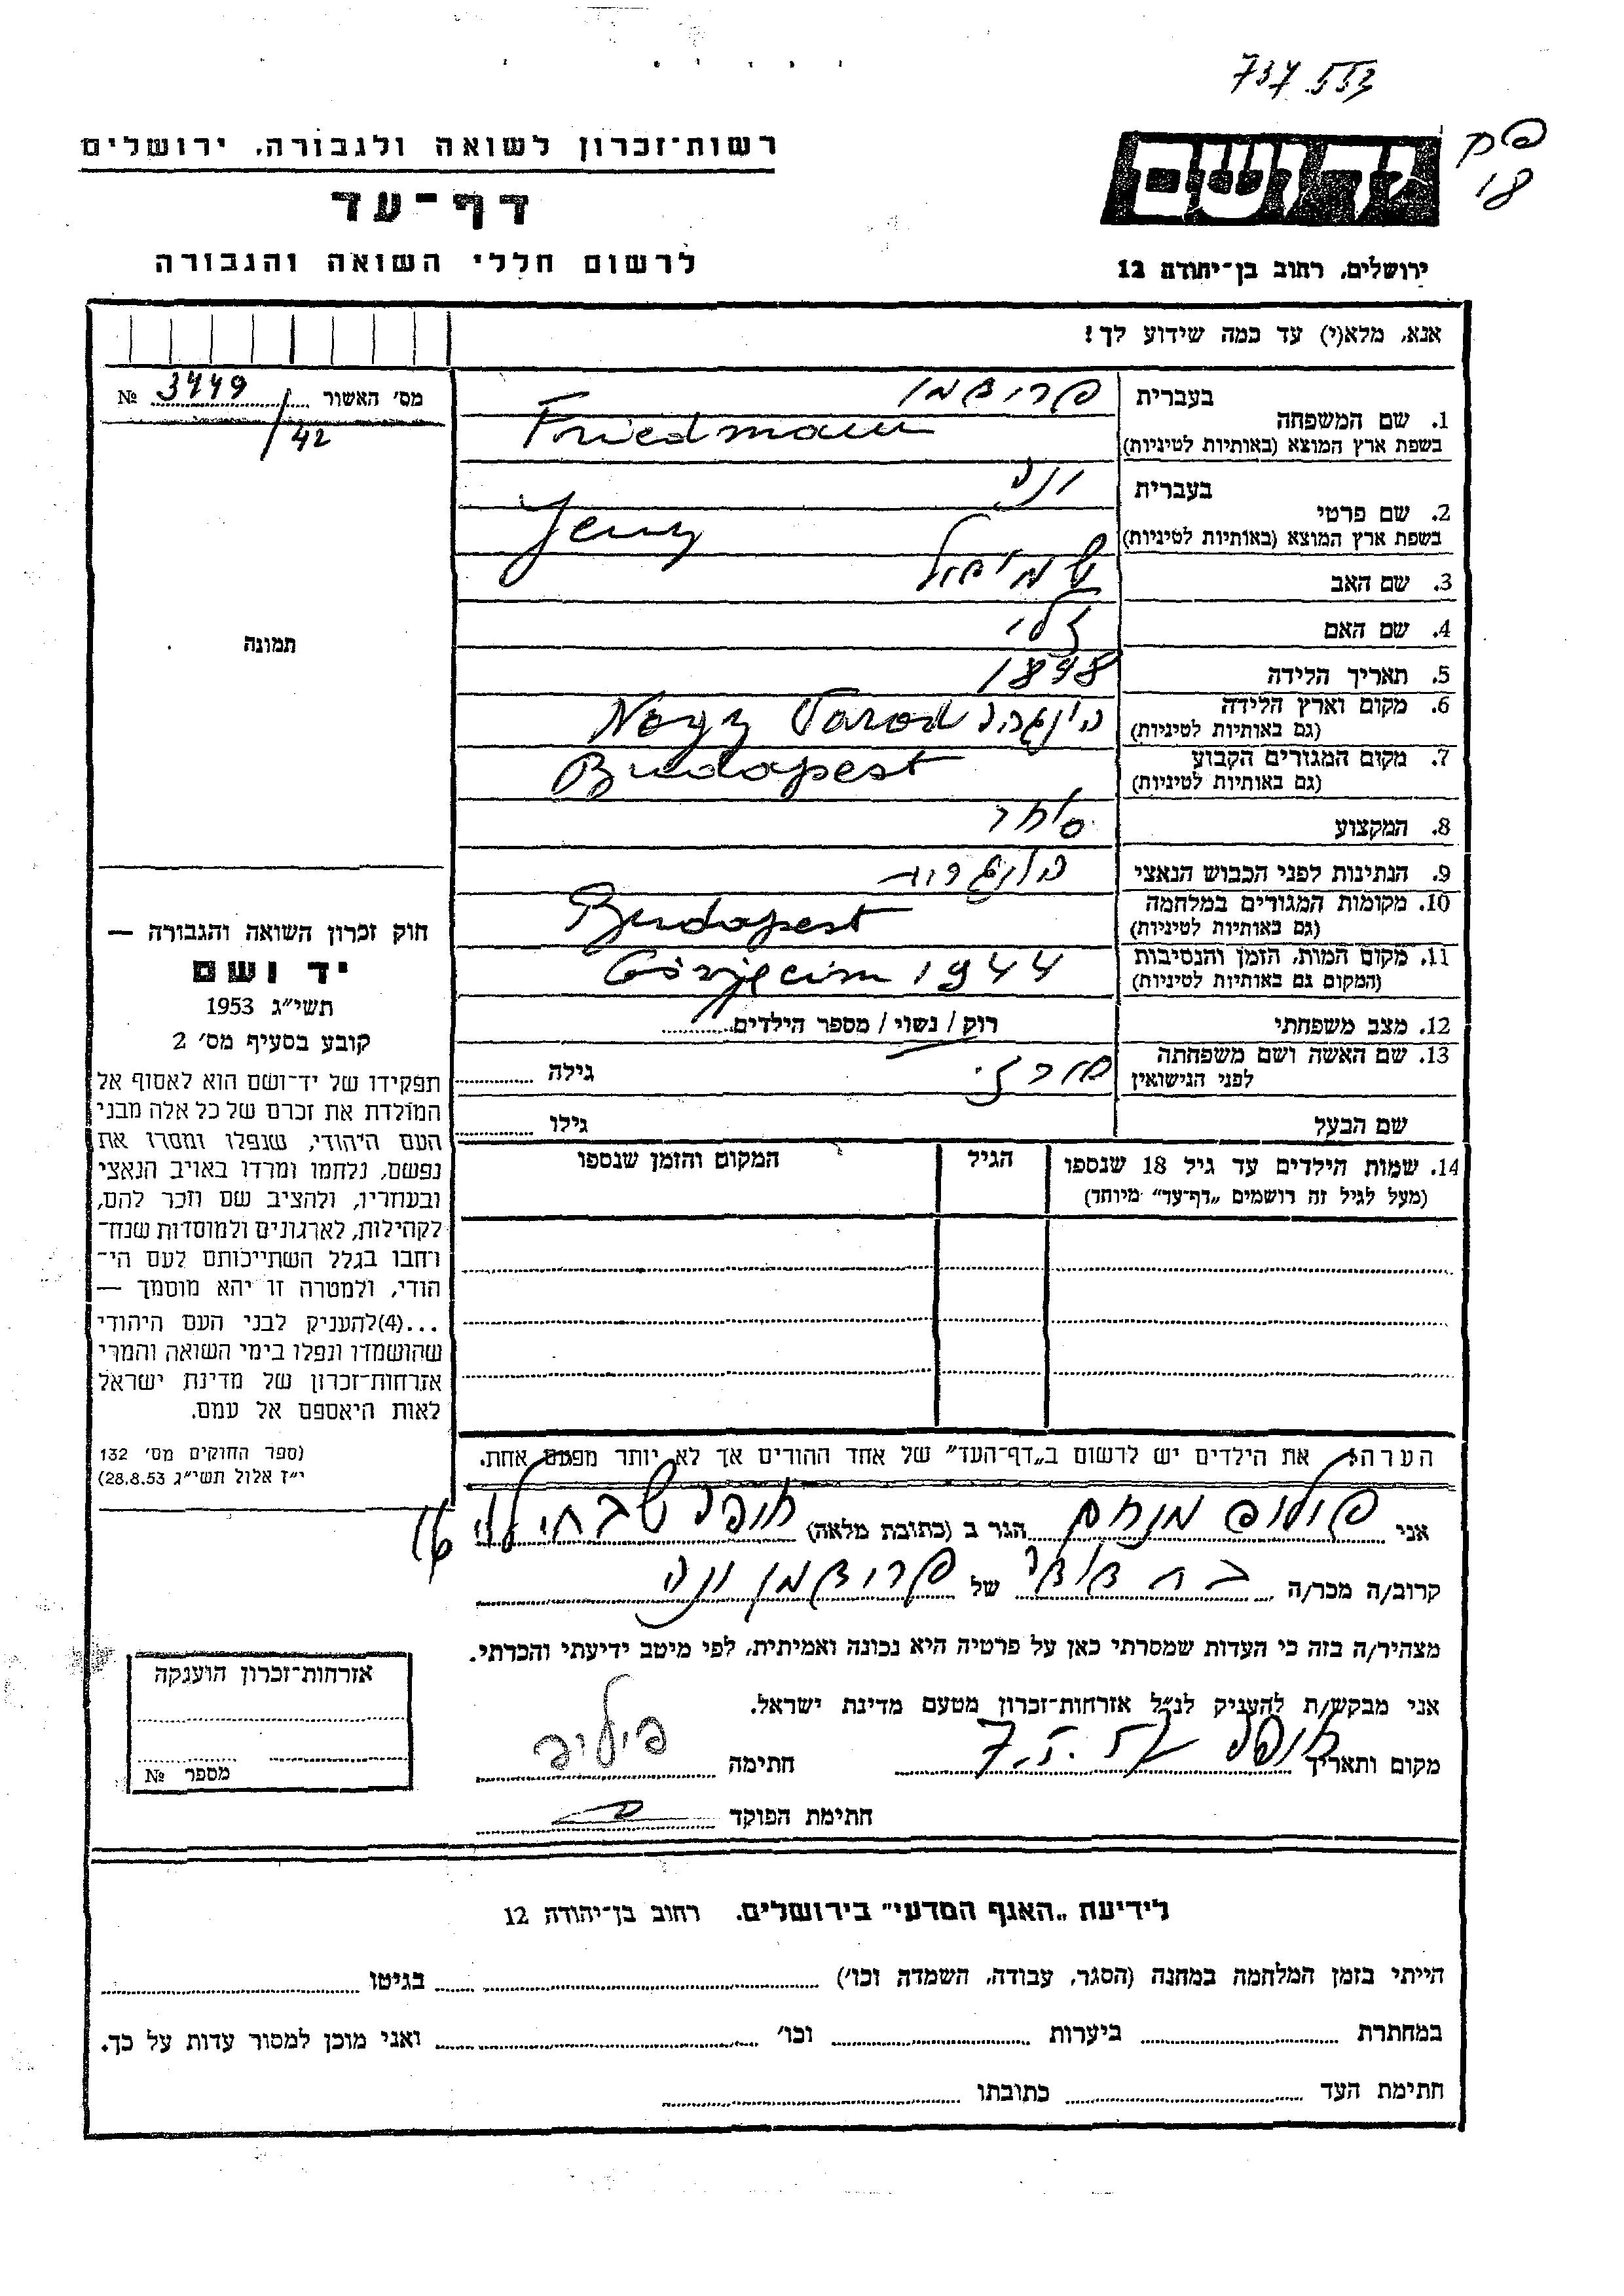 737.553
פק
18
יד ושם
רשות־זכרון לשואה ולגבורה, ירושלים
דף־עד
לרשום חללי השואה והגבורה
ירושלים, רחוב בן־יהודה 12
אנא, מלא(י) עד כמה שידוע לך!
מס׳ האשור 3449 №
/42
תמונה
בעברית פרידמן
1. שם המשפחה
בשפת ארץ המוצא (באותיות לטיניות) Friedmann
בעברית
2. שם פרטי
בשפת ארץ המוצא (באותיות לטיניות) Jeny
3. שם האב שמואל
4. שם האם
5. תאריך הלידה 1898
6. מקום וארץ הלידה
(גם באותיות לטיניות) Nagy Varad
7. מקום המגורים הקבוע
(גם באותיות לטיניות) Budapest
8. המקצוע סוחר
9. הנתינות לפני הכבוש הנאצי
10. מקומות המגורים במלחמה
(גם באותיות לטיניות) Budapest
11. מקום המות, הזמן והנסיבות
(המקום גם באותיות לטיניות) 1944
12. מצב משפחתי רוק / נשוי / מספר הילדים
13. שם האשה ושם משפחתה
לפני הנישואין גילה
שם הבעל גילו
14. שמות הילדים עד גיל 18 שנספו הגיל המקום והזמן שנספו
(מעל לגיל זה רושמים „דף־עד״ מיוחד)
חוק זכרון השואה והגבורה —
יד ושם
תשי״ג 1953
קובע בסעיף מס׳ 2
תפקידו של יד־ושם הוא לאסוף אל
המולדת את זכרם של כל אלה מבני
העם היהודי, שנפלו ומסרו את
נפשם, נלחמו ומרדו באויב הנאצי
ובעוזריו, ולהציב שם וזכר להם,
לקהילות, לארגונים ולמוסדות שנח־
רחבו בגלל השתייכותם לעם הי־
הודי, ולמטרה זו יהא מוסמך —
...(4)להעניק לבני העם היהודי
שהושמדו ונפלו בימי השואה והמרי
אזרחות־זכרון של מדינת ישראל
לאות היאספם אל עמם.
(ספר החוקים מס׳ 132
י״ז אלול תשי״ג 28.8.53)
הערה: את הילדים יש לרשום ב„דף־העד״ של אחד ההורים אך לא יותר מפעם אחת.
אני מנחם הגר ב (כתובת מלאה)
קרוב/ה מכר/ה של פרידמן
מצהיר/ה בזה כי העדות שמסרתי כאן על פרטיה היא נכונה ואמיתית, לפי מיטב ידיעתי והכרתי.
אני מבקש/ת להעניק לנ״ל אזרחות־זכרון מטעם מדינת ישראל.
מקום ותאריך חתימה
חתימת הפוקד
אזרחות־זכרון הוענקה
מספר №
לידיעת „האגף המדעי״ בירושלים. רחוב בן־יהודה 12
הייתי בזמן המלחמה במחנה (הסגר, עבודה, השמדה וכו׳) בגיטו
במחתרת ביערות וכו׳ ואני מוכן למסור עדות על כך.
חתימת העד כתובתו